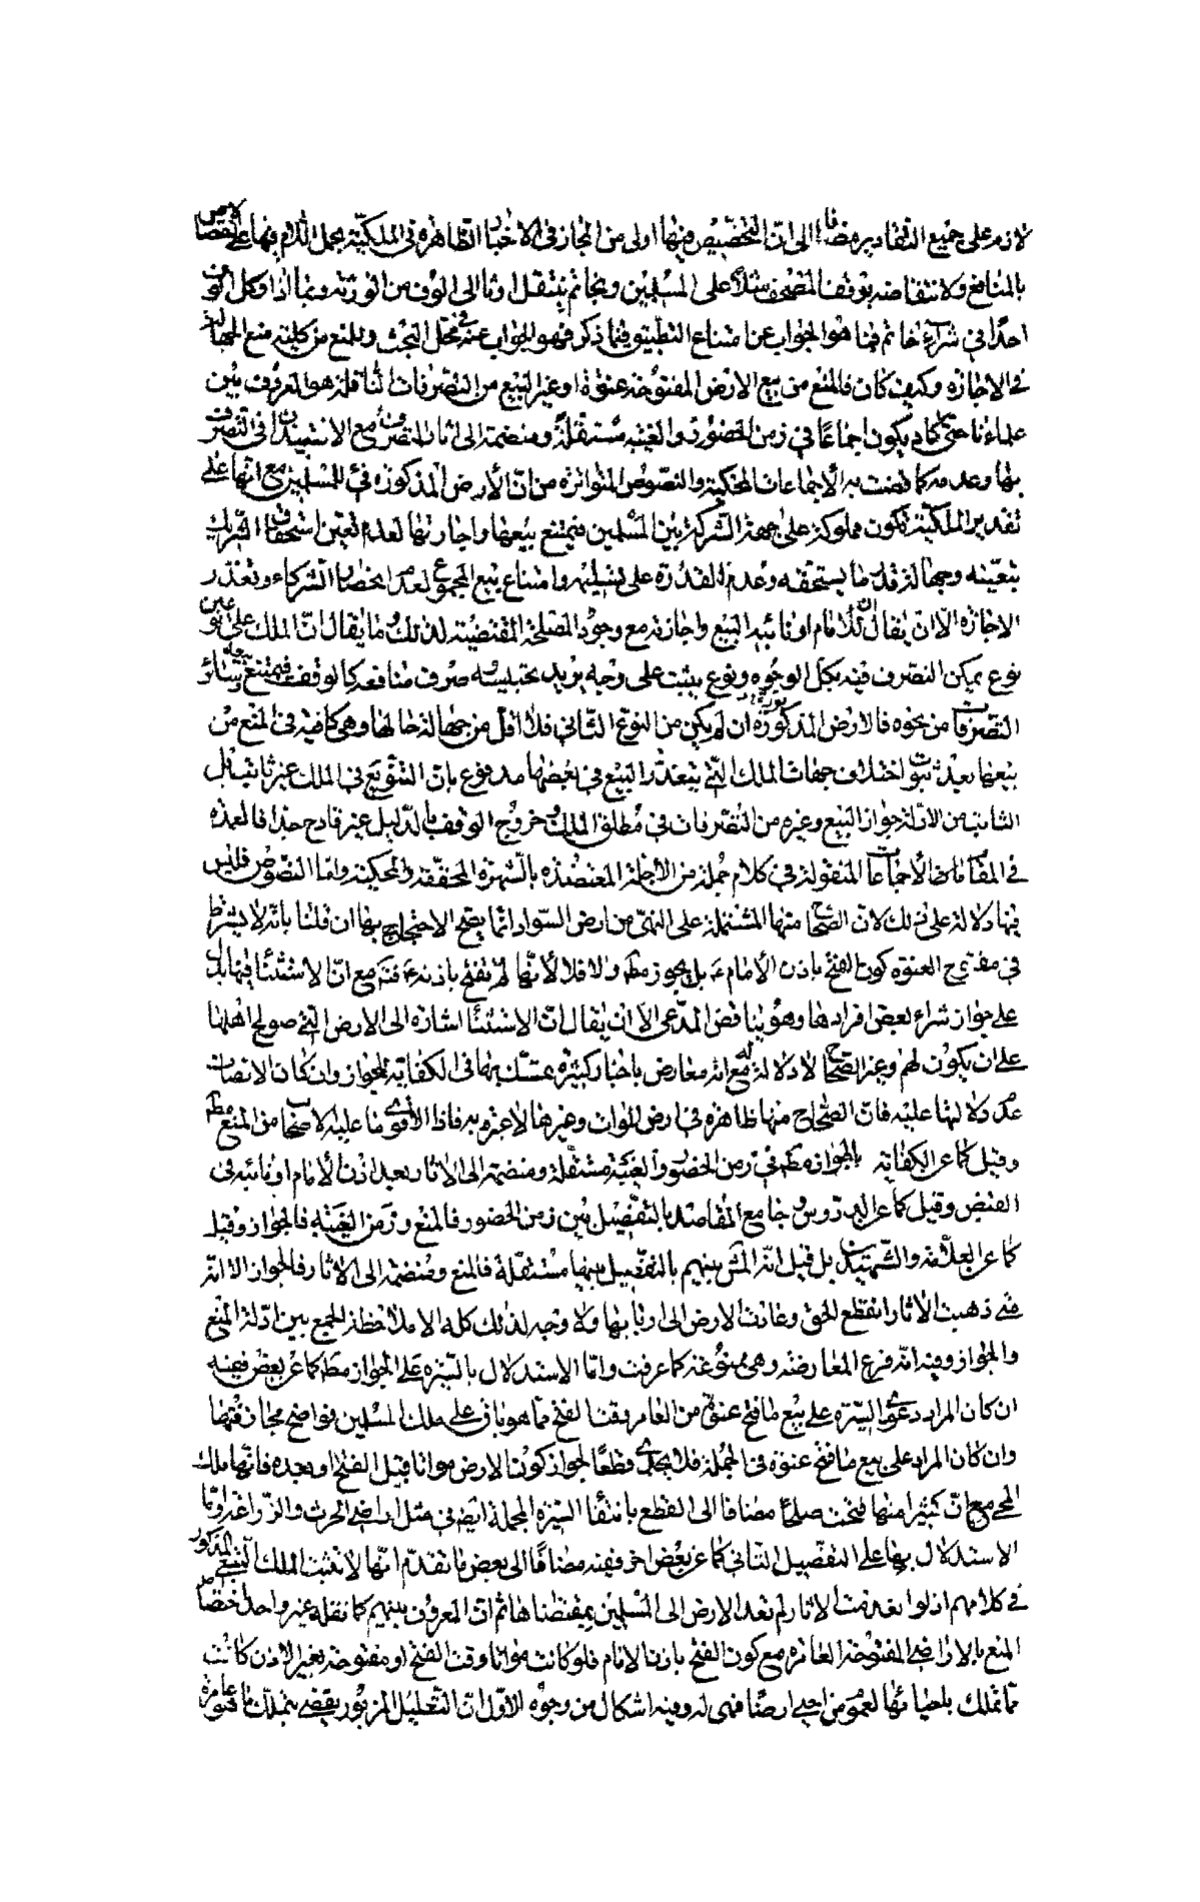 لازم على جميع التقادير مضافا الى ان التخصيص فيها اولى من المجاز في الاخبار الظاهرة في الملكية بحمل اللام فيها على الاختصاص
بالمنافع ولانتقاضه بوقف المصحف مثلا على المسلمين
احدا في شراء خاتم فما هو الجواب عن امتناع التطبيق فيما ذكر فهو الجواب عنه في محل البحث وللمنع من كليته منع الجهالة
في الاجازه وكيف كان فالمنع من بيع الارض المفتوحة عنوة او غير البيع من التصرفات الناقلة هو المعروف بين
علمائنا حتى كاد يكون اجماعا في زمن الحضور والغيبه مستقلة ومنضمة الى اثار المتصرف مع الاستيذان في التصرف
بها وعدمه كما قضت به الاجماعات المحكية والنصوص المتواترة من ان الارض المذكورة فئ للمسلمين مع انها على
تقدير الملكية تكون مملوكة على جهة الشركة بين المسلمين فيمتنع بيعها واجارتها لعدم تعين استحقاق الشريك
بتعينه وجهالة قدر ما يستحقه وعدم القدرة على تسليمه وامتناع بيع المجموع لعدم انحصار الشركاء وتعذر
الاجازه الا ان يقال ان للامام او نائبه البيع واجازته مع وجود المصلحة المقتضية لذلك وما يقال ان الملك على نوعين
نوع يمكن التصرف فيه بكل الوجوه ونوع يثبت على وجه يريد تحبيسه وصرف منافعه كالوقف فيمتنع بيعه وسائر
التصرفات من نحوه فالارض المذكورة ان لم يكن من النوع الثاني فلا اقل من جهالة حالها وهي كافية في المنع من
بيعها بعد ثبوت اختلاف جهات الملك التي يتعذر البيع في بعضها مدفوع بان التنويع في الملك غير ثابت بل
الثابت من الادلة جواز البيع وغيره من التصرفات في مطلق الملك وخروج الوقف بالدليل غير قادح جدا فالعمدة
في المقام الاجماعات المنقولة في كلام جملة من الاجلة المعتضدة بالشهرة المحققة والمحكية واما النصوص فليس
فيها دلالة على ذلك لان الصحاح منها المشتملة على النهي من ارض السواد انما يصح الاحتجاج بها ان قلنا بانه لا يشترط
في مفتوح العنوة كون الفتح باذن الامام ع بل يجوز مط والا فلا لانها لم تفتح باذنه ع فته مع ان الاستثناء فيها يدل
على جواز شراء بعض افرادها وهو يناقض المدعى الا ان يقال ان الاستثناء اشارة الى الارض التي صولح اهلها
على ان يكون لهم وغير الصحاح لا دلالة له مع انه معارض باخبار كثيرة تمسك بها في الكفاية للجواز وان كان الانصاف
عدم دلالتها عليه فان الصحاح منها ظاهرة في ارض الموات وغيرها لا عبرة به فاذا الاقوى ما عليه الاصحاب من المنع مط
وقيل كما عن الكفاية بالجواز مط في زمن الحضور والغيبة مستقلة ومنضمة الى الاثار بعد اذن الامام او نائبه في
القبض وقيل كما عن الدروس وجامع المقاصد بالتفصيل بين زمن الحضور فالمنع وزمن الغيبة فالجواز وقيل
كما عن العلامة والشهيدين بل قيل انه المش بينهم بالتفصيل بيعها مستقلة فالمنع ومنضمة الى الاثار فالجواز الا انه
متى ذهبت الاثار انقطع الحق وعادت الارض الى اربابها ولا وجه لذلك كله الا ملاحظة الجمع بين ادلة المنع
والجواز وفيه انه فرع المعارضة وهي ممنوعة كما عرفت واما الاستدلال بالسيرة على الجواز مط كما عن بعض ففيه
ان كان المراد دعوى السيرة على بيع ما فتح عنوة من العامر وقت الفتح مما هو باق على ملك المسلمين فواضح مجازفتها
وان كان المراد على بيع ما فتح عنوة في الجملة فلا يجدي قطعا لجواز كون الارض مواتا قبل الفتح او بعده فانها ملك
المحي مع ان كثيرا منها فتحت صلحا مضافا الى القطع بانتفاء السيرة المجملة ايضا في مثل اراضي الحرث والزراعة واما
الاستدلال بها على التفصيل الثاني كما عن بعض اخر ففيه مضافا الى بعض ما تقدم انها لا تثبت الملك التبعي المذكور
في كلامهم اذ لو انعدمت الاثار لم تعد الارض الى المسلمين بمقتضاها ثم ان المعروف بينهم كما نقله غير واحد اختصاص
المنع بالاراضي المفتوحة العامرة مع كون الفتح باذن الامام فلو كانت مواتا وقت الفتح او مفتوحة بغير الاذن كانت
مما تملك باحيائها لعموم من احيى ارضا فهي له وفيه اشكال من وجوه الاول ان التعليل المزبور يقضي بتملك ما